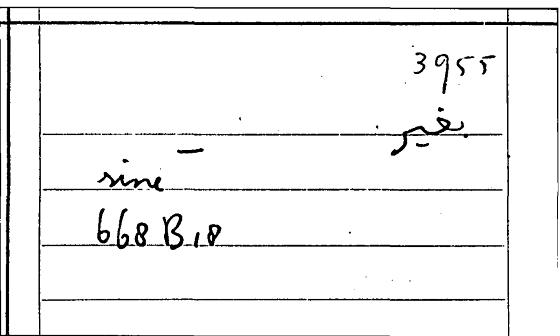 3955
بغير
sine —
668 B, 8